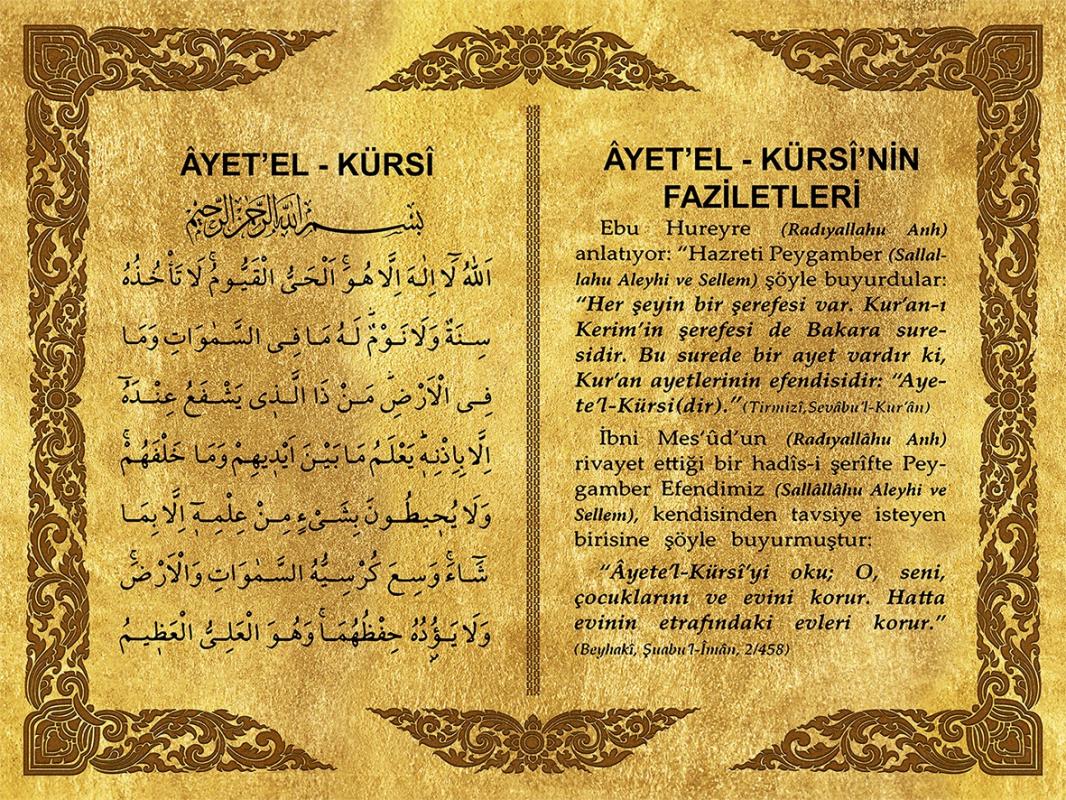 ÂYET’EL - KÜRSÎ
بِسْمِ اللّٰهِ الرَّحْمٰنِ الرَّحِيمِ
اَللّٰهُ لَٓا اِلٰهَ اِلَّا هُوَۚ اَلْحَىُّ الْقَيُّومُۚ لَا تَأْخُذُهُ
سِنَةٌ وَلَا نَوْمٌۜ لَهُ مَا فِى السَّمٰوَاتِ وَمَا
فِى الْاَرْضِۜ مَنْ ذَا الَّذٖى يَشْفَعُ عِنْدَهُٓ
اِلَّا بِاِذْنِهٖۜ يَعْلَمُ مَا بَيْنَ اَيْدٖيهِمْ وَمَا خَلْفَهُمْۚ
وَلَا يُحٖيطُونَ بِشَىْءٍ مِنْ عِلْمِهٖٓ اِلَّا بِمَا
شَٓاءَۚ وَسِعَ كُرْسِيُّهُ السَّمٰوَاتِ وَالْاَرْضَۚ
وَلَا يَؤُ۫دُهُ حِفْظُهُمَاۚ وَهُوَ الْعَلِىُّ الْعَظٖيمُ
ÂYET’EL - KÜRSÎ’NİN
FAZİLETLERİ
Ebu Hureyre (Radıyallahu Anh)
anlatıyor: “Hazreti Peygamber (Sallal-
lahu Aleyhi ve Sellem) şöyle buyurdular:
“Her şeyin bir şerefesi var. Kur’an-ı
Kerim’in şerefesi de Bakara sure-
sidir. Bu surede bir ayet vardır ki,
Kur’an ayetlerinin efendisidir: “Aye-
te’l-Kürsi(dir).” (Tirmizî,Sevâbu’l-Kur’ân)
İbni Mes’ûd’un (Radıyallâhu Anh)
rivayet ettiği bir hadîs-i şerîfte Pey-
gamber Efendimiz (Sallâllâhu Aleyhi ve
Sellem), kendisinden tavsiye isteyen
birisine şöyle buyurmuştur:
“Âyete’l-Kürsî’yi oku; O, seni,
çocuklarını ve evini korur. Hatta
evinin etrafındaki evleri korur.”
(Beyhakî, Şuabu’l-Îmân, 2/458)